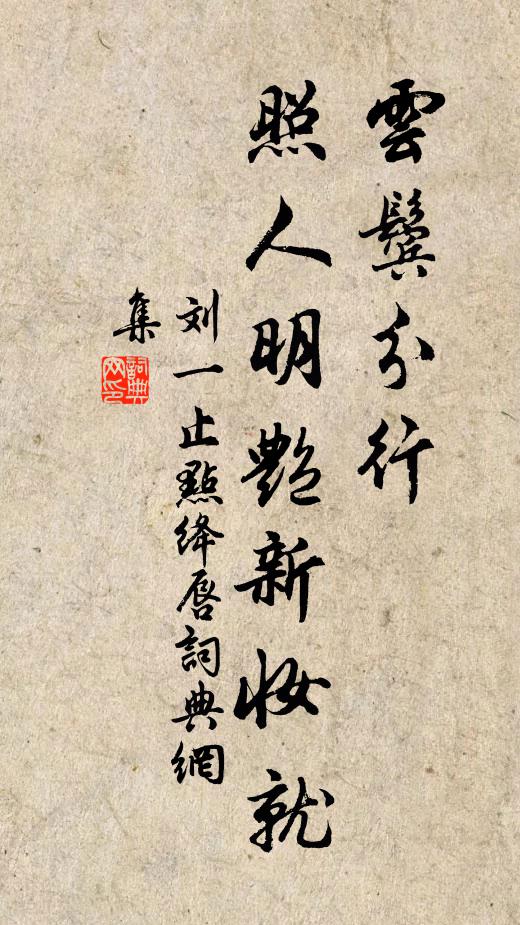 雲鬢分行
照人明艶新妝就
刘一止點绛唇詞典網
集
詞典网印